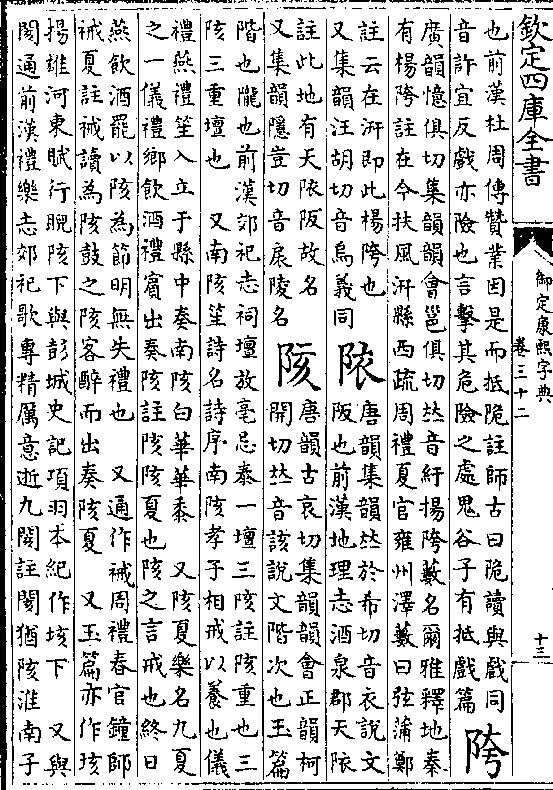 欽定四庫全書
御定康熙字典
卷三十二
十三
也前漢杜周傳贊業因是而抵陒註師古曰陒讀與戲同
音許宜反戲亦險也言擊其危險之處鬼谷子有抵戲篇
陓
廣韻憶俱切集韻韻會邕俱切𠀤音紆揚陓藪名爾雅釋地秦
有楊陓註在今扶風汧縣西疏周禮夏官雍州澤藪曰弦蒲鄭
註云在汧即此楊陓也
陒
唐韻集韻𠀤於希切音衣說文
又集韻汪胡切音烏義同
阪也前漢地理志酒泉郡天䧇
註此地有天䧇阪故名
又集韻隱豈切音扆陵名
陔
唐韻古哀切集韻韻會正韻柯
開切𠀤音該說文階次也玉篇
階也隴也前漢郊祀志祠壇放亳忌泰一壇三陔註陔重也三
陔三重壇也 又南陔笙詩名詩序南陔孝子相戒以養也儀
禮燕禮笙入立于縣中奏南陔白華華黍 又陔夏樂名九夏
之一儀禮鄉飲酒禮賓出奏陔註陔陔夏也陔之言戒也終日
燕飲酒罷以陔為節明無失禮也 又通作祴周禮春官鐘師
祴夏註祴讀為陔鼓之陔客醉而出奏陔夏 又玉篇亦作垓
揚雄河東賦行睨陔下與彭城史記項羽本紀作垓下 又與
閡通前漢禮樂志郊祀歌專精厲意逝九閡註閡猶陔淮南子